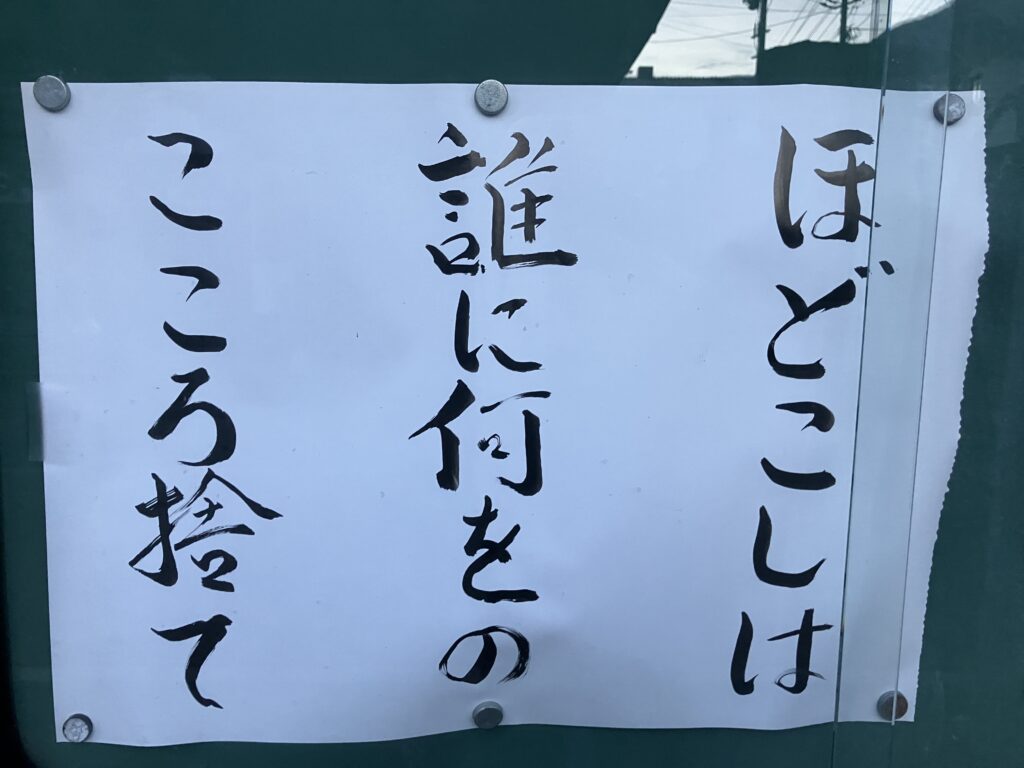 ほどこしは
誰に何をの
こころ捨て